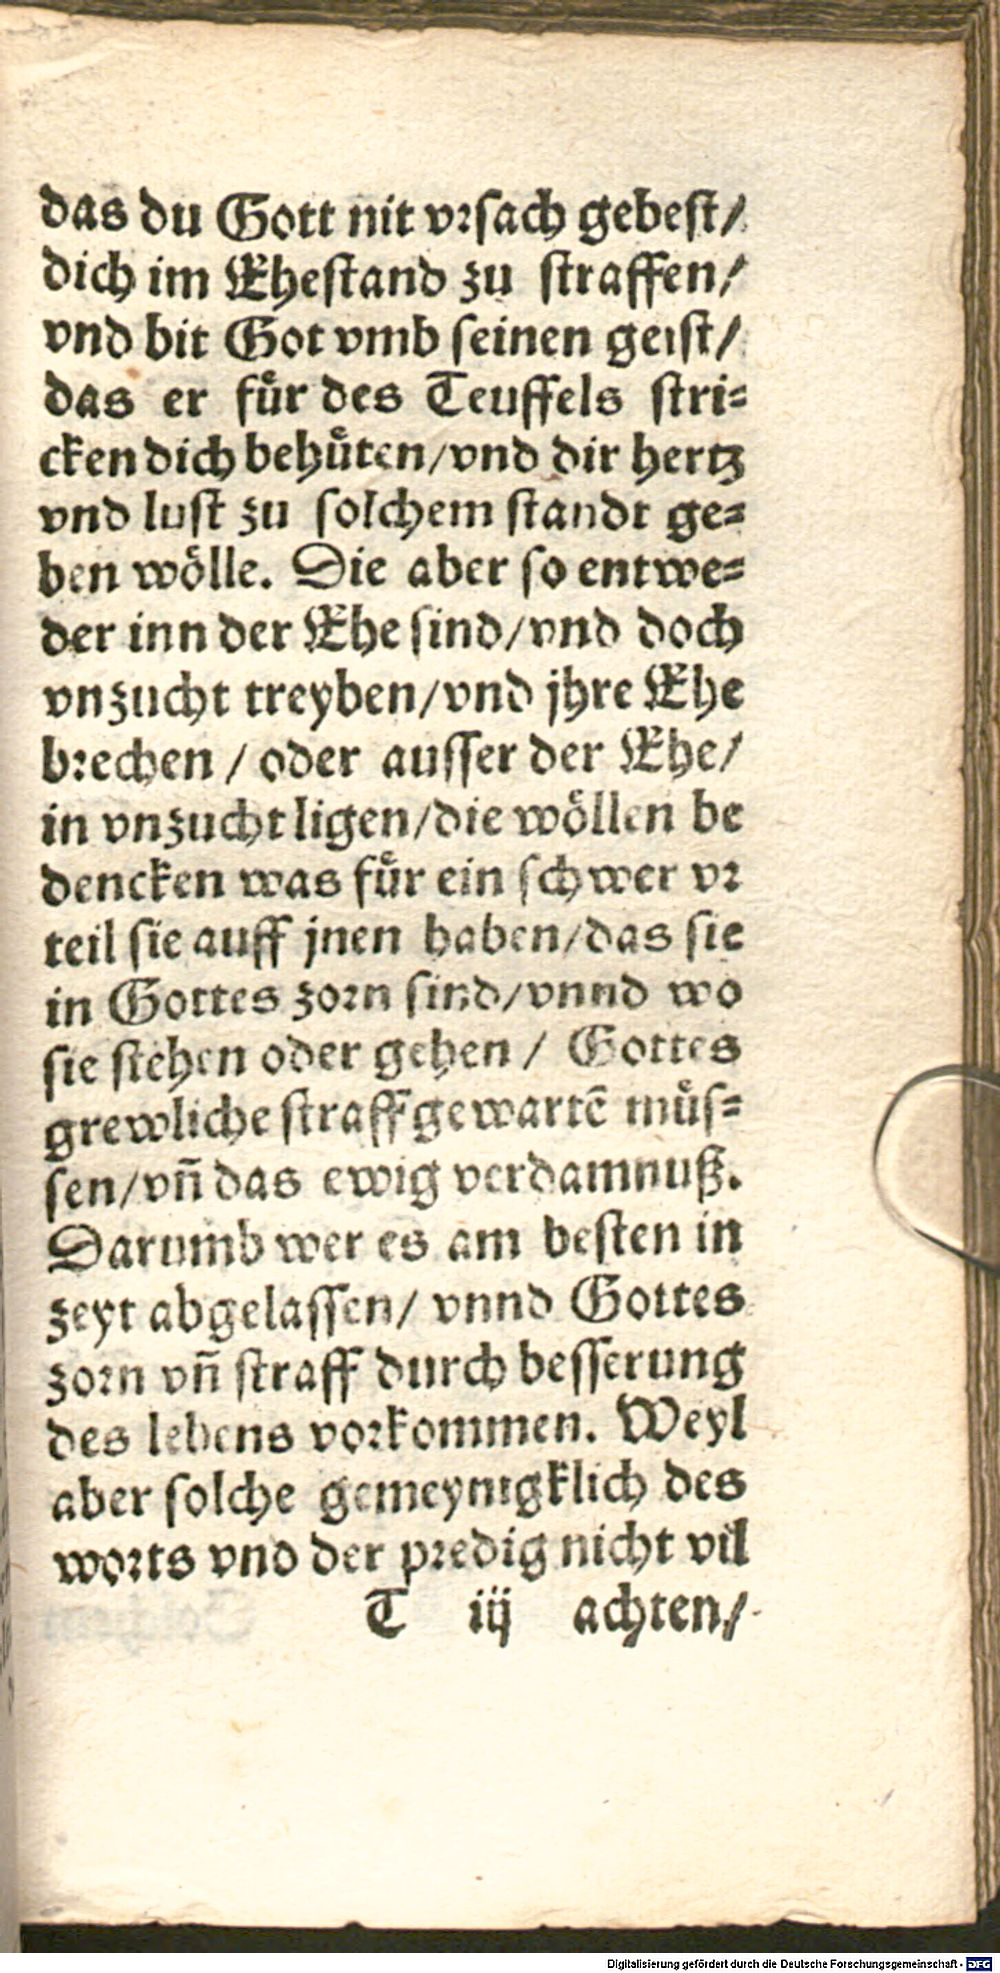 das du Gott nit vꝛſach gebeſt/
dich im Eheſtand zu ſtraffen/
vnd bit Got vmb ſeinen geiſt/
das er fuͤr des Teuffels ſtri⸗
cken dich behuͤten/vnd dir hertz
vnd luſt zu ſolchem ſtandt ge⸗
ben woͤlle. Die aber ſo entwe⸗
der inn der Ehe ſind/vnd doch
vnzucht treyben/vnd jhre Ehe
bꝛechen / oder auſſer der Ehe/
in vnzucht ligen/die woͤllen be
dencken was fuͤr ein ſchwer vꝛ
teil ſie auff jnen haben/das ſie
in Gottes zoꝛn ſind/vnnd wo
ſie ſtehen oder gehen / Gottes
grewliche ſtraff gewartē muͤſ⸗
ſen/vn̄ das ewig verdamnuß.
Darumb wer es am beſten in
zeyt abgelaſſen/ vnnd Gottes
zoꝛn vn̄ ſtraff durch beſſerung
des lebens voꝛkommen. Weyl
aber ſolche gemeynigklich des
woꝛts vnd der pꝛedig nicht vil
T iij achten/
Digitalisierung gefördert durch die Deutsche Forschungsgemeinschaft - DFG